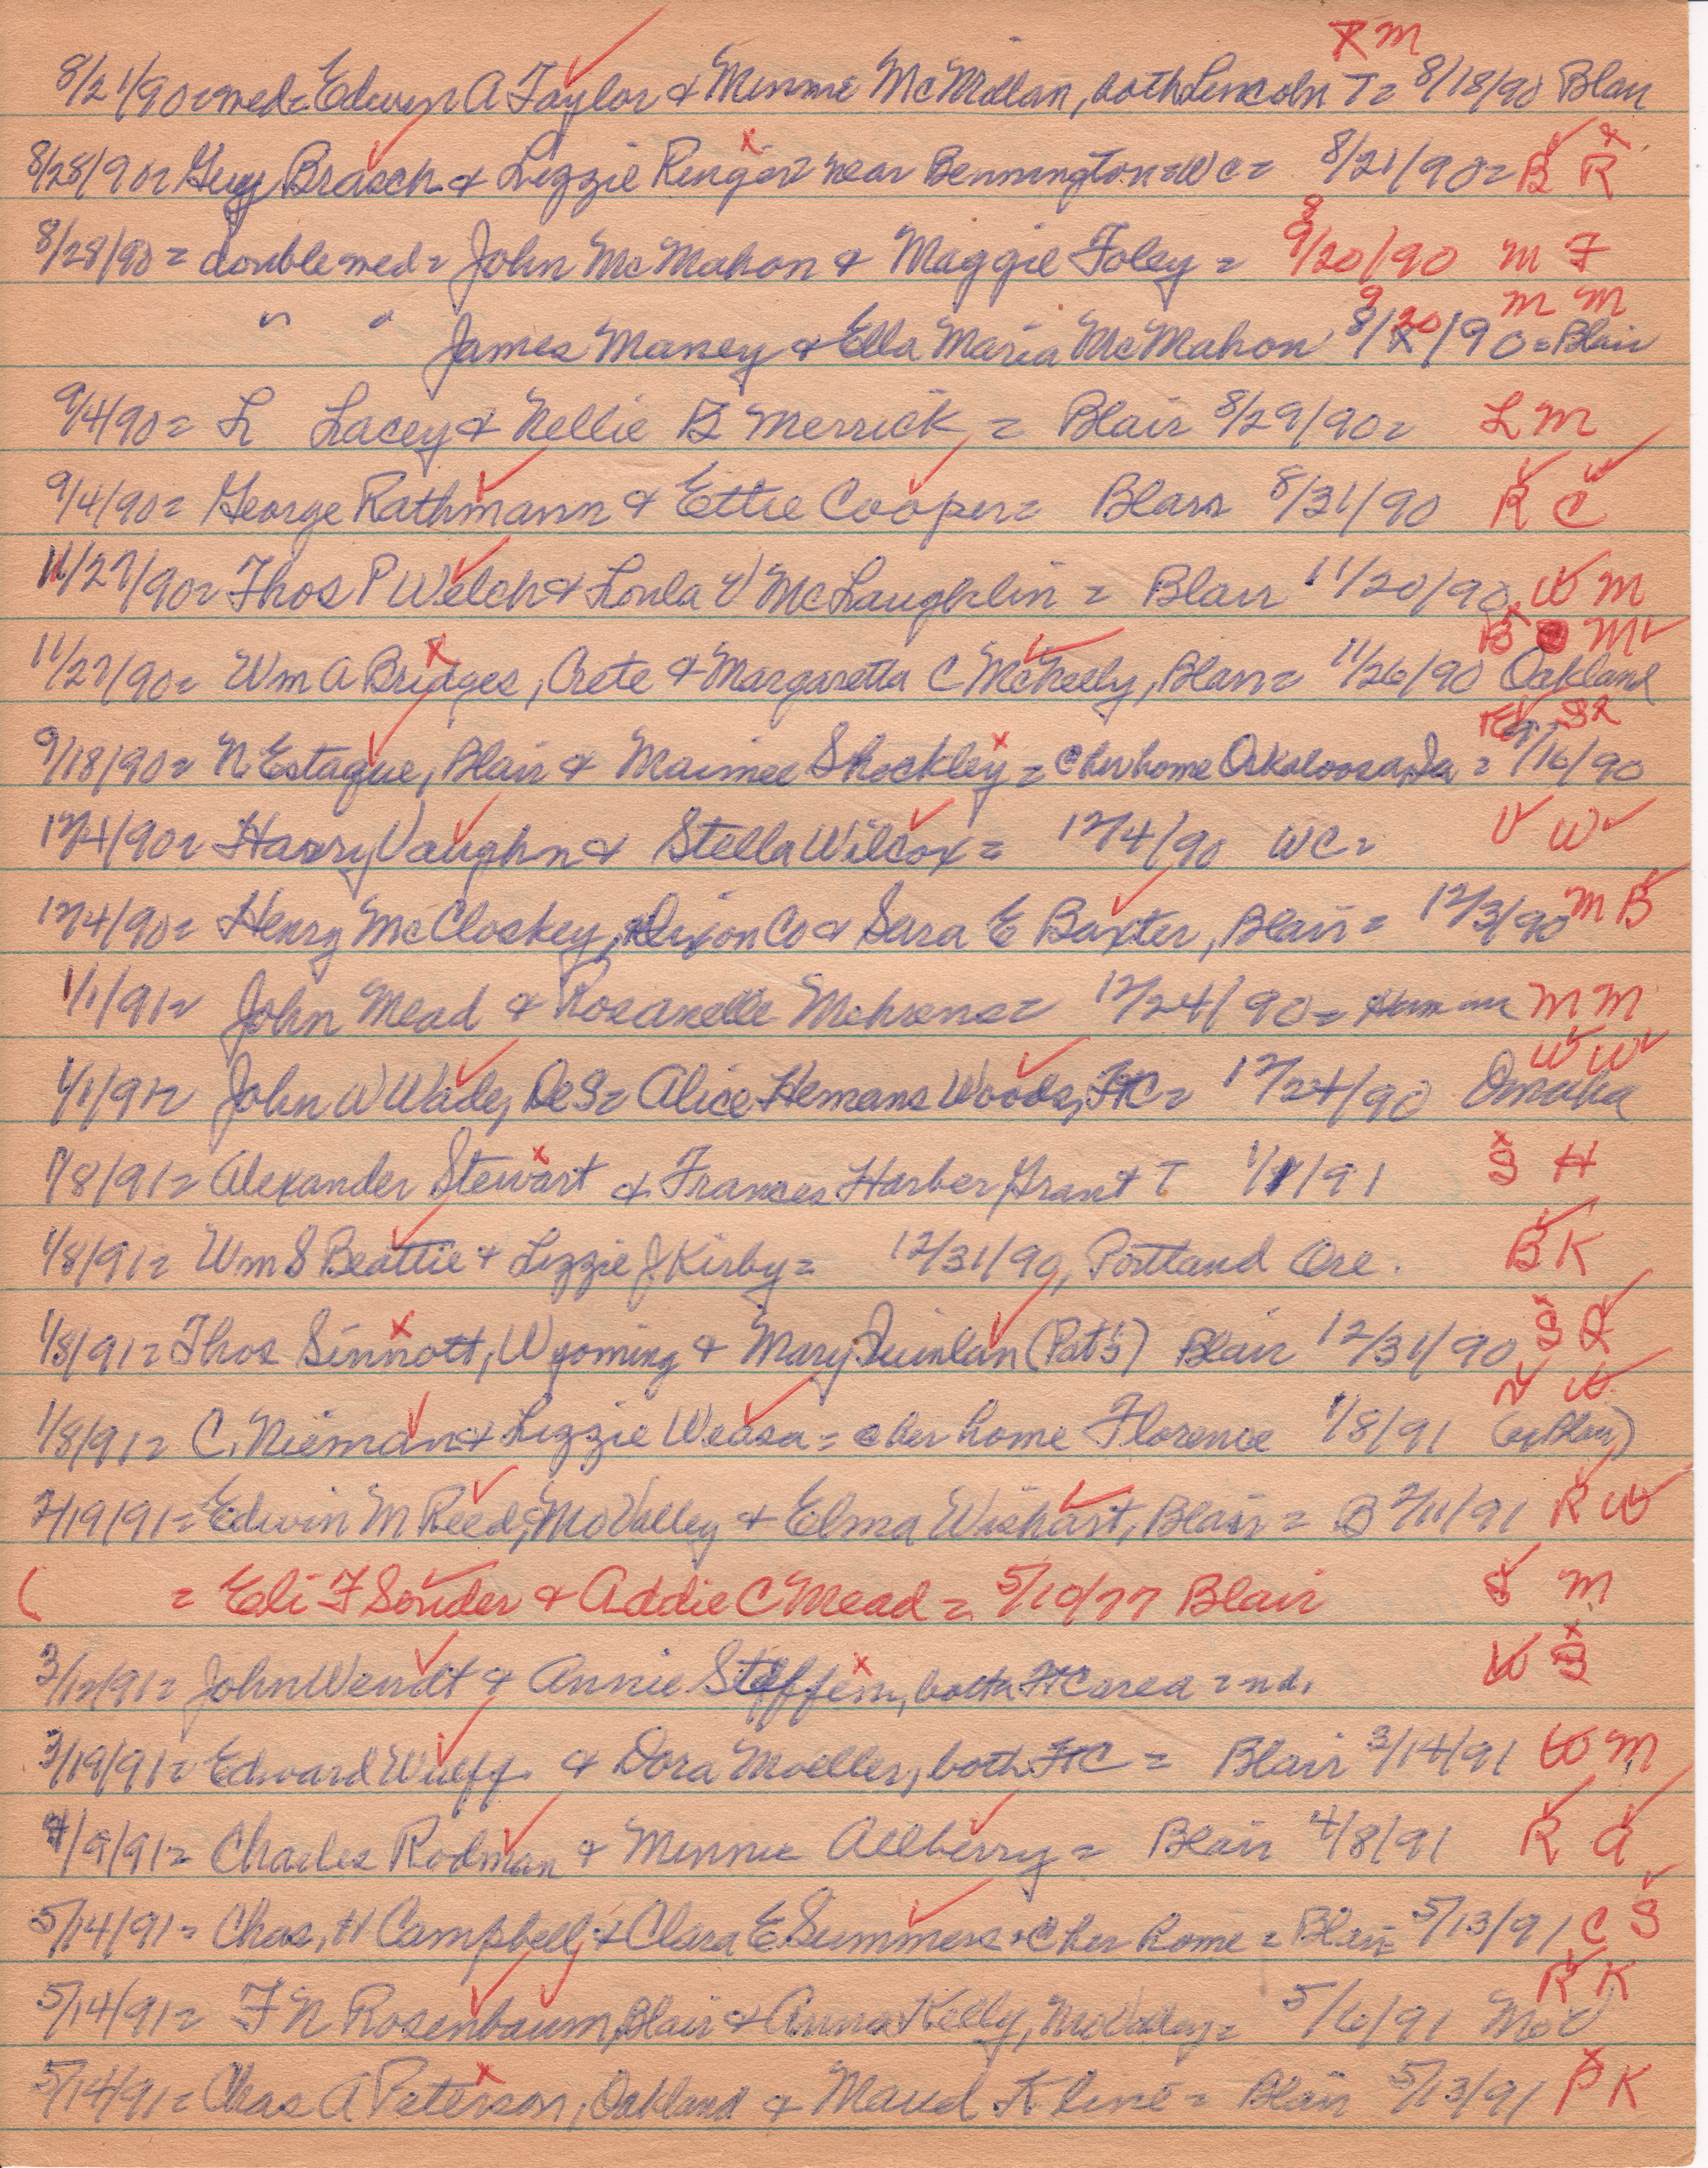 T M
8/21/90= wed= Edwin A Taylor & Minnie McMillan, both Lincoln T= 8/18/90 Blair
8/28/90= Guy Brasch & Lizzie Ringer near Bennington= WC= 8/21/90= B R
8/28/90= double wed= John McMahon & Maggie Foley = 9/20/90 M F
" " James Maney & Ella Maria McMahon 8/20/90 = Blair M M
9/4/90= L Lacey & Nellie B Merrick = Blair 8/29/90= L M
9/4/90= George Rathmann & Ettie Cooper= Blair 8/31/90 R C
11/27/90= Thos P Welch & Loula V McLaughlin = Blair 11/20/90 W M
11/27/90= Wm A Bridges, Crete & Margaretta C McNeely, Blair= 11/26/90 Oakland B M
9/18/90= N Estaque, Blair & Maimee Shockley = @ her home Oskaloosa, Ia = 9/16/90 E S
12/4/90= Harry Vaughn & Stella Wilcox = 12/4/90 WC= V W
12/4/90= Henry McCloskey, Dixon Co & Sara E Baxter, Blair = 12/3/90 M B
1/1/91= John Mead & Rosanelle Mehrens= 12/24/90= Herman M M
1/1/91= John W Wade, DeS= Alice Hemans Woods, FtC= 12/24/90 Omaha W W
1/8/91= Alexander Stewart & Frances Harber, Grant T 1/1/91 S H
1/8/91= Wm S Beattie & Lizzie J. Kirby= 12/31/90, Portland Ore. B K
1/8/91= Thos Sinnott, Wyoming & Mary Quinlan (Pat's) Blair 12/31/90 S Q
1/8/91= C. Nieman & Lizzie Weasa = @ her home Florence 1/8/91 (of Blair) N W
2/19/91= Edwin M Reed, Mo Valley & Elma Wishart, Blair = B 2/11/91 R W
( = Eli F Souder & Addie C Mead = 5/10/77 Blair S M
3/12/91= John Wendt & Annie Steffen, both FtC area = nd. W S
3/19/91= Edward Wulff & Dora Moeller, both FtC = Blair 3/14/91 W M
4/9/91= Charles Rodman & Minnie Allberry = Blair 4/8/91 R A
5/14/91= Chas. H Campbell & Clara E Summers = @ her home = Blair= 5/13/91 C S
5/14/91= F N Rosenbaum, Blair & Anna Kelly, Mo Valley= 5/6/91 Mo V R K
5/14/91= Chas A Peterson, Oakland & Maud Kline = Blair 5/13/91 P K